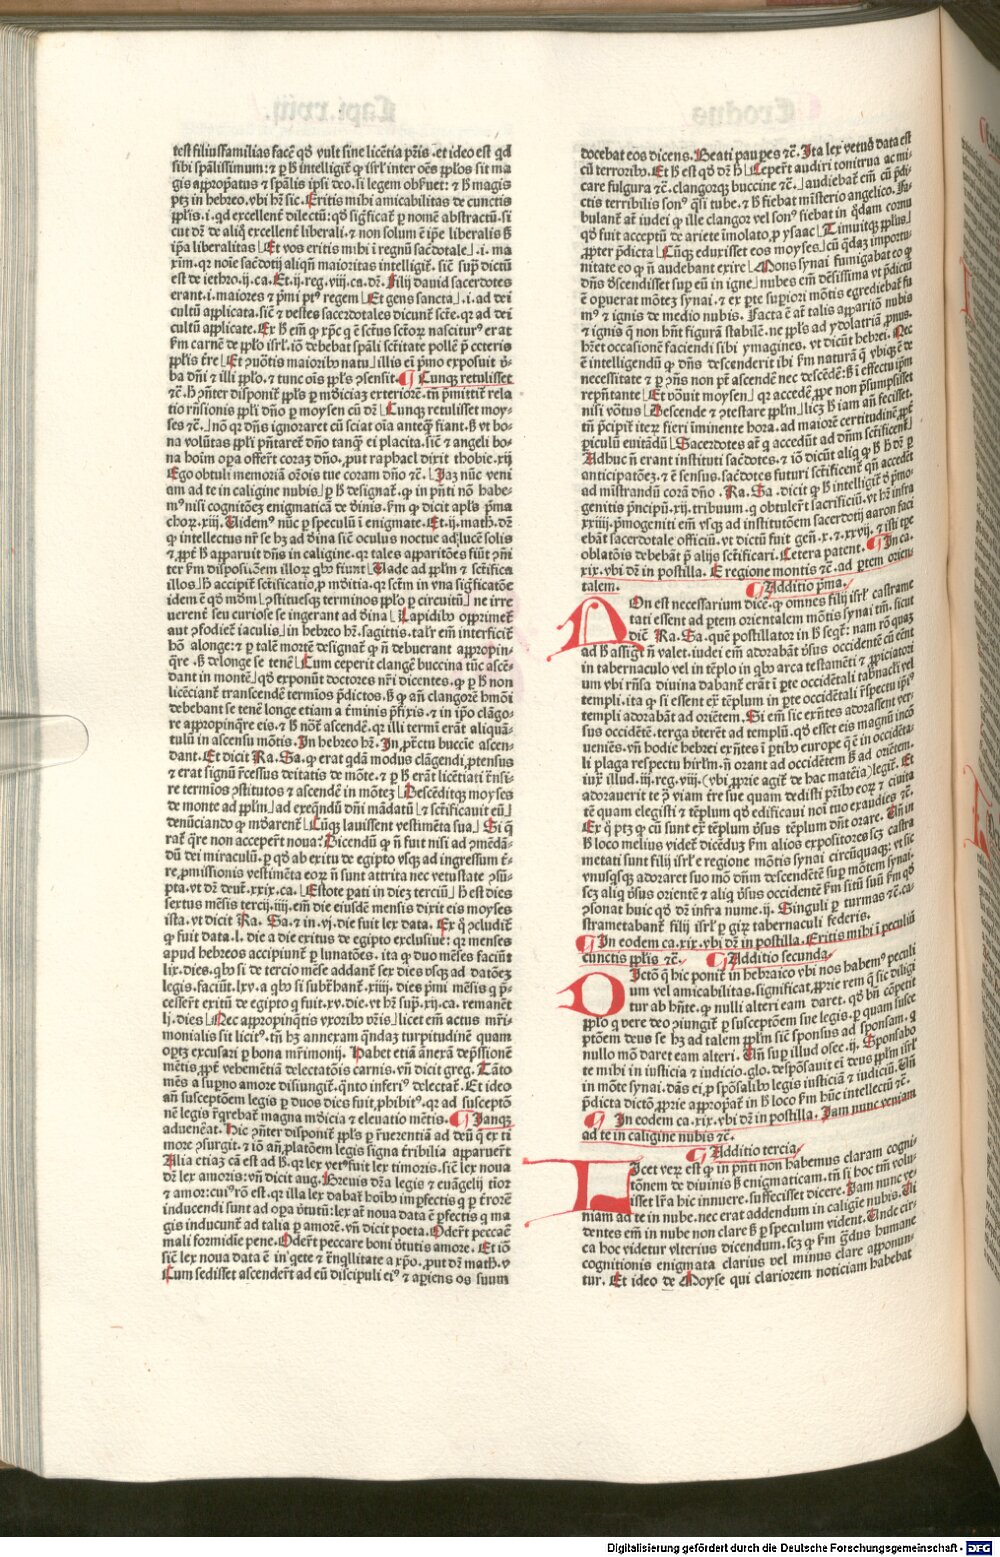 test filiusfamilias facē qđ vult sine licētia pr̄is . et ideo est qđ
sibi spālissimum : ⁊ p h̄ intelligit̄ ꝙ isrl̄ inter oēs pp̄los sit ma
gis appropatus ⁊ spālis ipsi deo . si legem obẜuet : ⁊ h̄ magis
ptꝫ in hebreo . vbi hꝫ sic . Eritis mihi amicabilitas de cunctis
pp̄lis . i . qđ excellent̄ dilectū : qđ sigīficat̄ p nomē abstractū . si
cut dr̄ de aliq̄ excellent̄ liberali . ⁊ non solum ē ip̄e liberalis s̄
ip̄a liberalitas Et vos eritis mihi ī regnū sac̄dotale . i . ma
xim . qꝛ noīe sac̄dotij aliqn̄ maioritas intelligit̄ . sic̄ sup̄ dictū
est de iethro . ij . ca . Et . ij . reg . viij . ca . dr̄ . Filij dauid sacerdotes
erant . i . maiores ⁊ p̄mi pt̄ regem Et gens sancta . i . ad dei
cultū applicata . sic̄ ⁊ vestes sacerdotales dicunt̄ sctē . qꝛ ad dei
cultū applicate . Ex h̄ em̄ ꝙ xp̄c q ē sctūs sctōꝝ nasciturꝰ erat
fm carnē de pp̄lo isrl̄ . iō debebat spāli sctītate pollē p̄ ceteris
pp̄lis tr̄e Et ꝯuōtis maioribꝰ natu illis ei p̄mo exposuit v̄-
ba dn̄i ⁊ illi pp̄lo . ⁊ tunc oīs pp̄ls ꝯsensit . Cunqꝫ retulisset
⁊c̄ . h̄ ꝯn̄ter disponit̄ pp̄ls p mūdiciaꝫ exteriorē . tn̄ p̄mittit̄ rela
tio rn̄sionis pp̄li dn̄o p moysen cū dr̄ Cunqꝫ retulisset moy-
ses ⁊c̄ . nō qꝛ dn̄s ignoraret cū sciat oīa anteqꝫ fiant . s̄ vt bo-
na volūtas pp̄li pn̄taret̄ dn̄o tanqꝫ ei placita . sic̄ ⁊ angeli bo-
na hoīm opa offert̄ coraꝫ dn̄o . put raphael dixit thobie . xij
Ego obtuli memoriā orōis tue coram dn̄o ⁊c̄ . Jaꝫ nūc veni
am ad te in caligine nubis p h̄ designat̄ . ꝙ in pn̄ti nō habe-
mꝰ nisi cognitōeꝫ enigmaticā de diuinis . fm ꝙ dicit apl̄s p̄ma
choꝝ . xiij . Uidemꝰ nūc p speculū ī enigmate . Et . ij . math . dr̄
ꝙ intellectus nr̄ se hꝫ ad diuina sic̄ oculus noctue ad lucē solis
⁊ ppt̄ h̄ apparuit dn̄s in caligine . qꝛ tales apparitōes fiūt ꝯn̄i
ter fm disposi.tōem illoꝝ qbꝰ fiunt Uade ad pp̄lm ⁊ sctīfica
illos h̄ accipit̄ sctīficatio p mūditia . qꝛ sctm in vna sigīficatōe
idem ē qđ mūdm ꝯstituesqꝫ terminos pp̄lo p circuitū ne irre
uerent seu curiose se ingerant ad diuina Lapidibꝰ opprimet̄
aut ꝯfodiet̄ iaculis in hebreo hꝫ . sagittis . talr̄ em̄ interficit̄
hō alonge : ⁊ p talē mortē designat̄ ꝙ n̄ debuerant appropin-
q̄re . s̄ delonge se tenē Cum ceperit clangē buccina tūc ascē-
dant in montē qđ exponūt doctores nr̄i dicentes . ꝙ p h̄ non
licēciant̄ transcendē termīos p̄dictos . s̄ ꝙ an̄ clangorē hmōi
debebant se tenē longe etiam a t̄minis p̄fixis . ⁊ in ip̄o clāgo-
re appropinq̄re eis . ⁊ h̄ nōt̄ ascendē . qꝛ illi termī erāt aliquā-
tulū in ascensu mōtis . In hebreo hꝫ . In pt̄ctu buccīe ascen-
dant . Et dicit Ra . Sa . ꝙ erat qdā modus clāgendi ptensus
⁊ erat signū rc̄essus deitatis de mōte . ⁊ p h̄ erāt licētiati t̄nsi-
re termīos ꝯstitutos ⁊ ascendē in mōteꝫ Descēditqꝫ moyses
de monte ad pp̄lm ad exeqn̄dū dn̄i mādatū ⁊ sctīficauit eū
denūciando ꝙ mūdarent̄ Cūqꝫ lauissent vestimēta sua Si q̄
rat̄ q̄re non accepert̄ noua : Dicendū ꝙ n̄ fuit nisi ad ꝯmēdā-
dū dei miraculū . p qđ ab exitu de egipto vsqꝫ ad ingressum t̄-
re pmissionis vestimēta eoꝝ n̄ sunt attrita nec vetustate ꝯsū-
pta . vt dr̄ deut̄ . xxix . ca . Estote pati in dieꝫ terciū h̄ est dies
sextus mēsis tercij . iiij . em̄ die eiusdē mensis dixit eis moyses
ista . vt dicit Ra . Sa . ⁊ in . vi . die fuit lex data . Ex q ꝯcludit̄
ꝙ fuit data . l . die a die exitus de egipto exclusiue : qꝛ menses
apud hebreos accipiunt̄ p lunatōes . ita ꝙ duo mēses faciūt
lix . dies . qbꝰ si de tercio mēse addant̄ sex dies vsqꝫ ad datōeꝫ
legis . faciūt . lxv . a qbꝰ si subt̄hant̄ . xiiij . dies p̄mi mēsis q p̄-
cessert̄ exitū de egipto q fuit . xv . die . vt hꝫ sup̄ . xij . ca . remanēt
lj . dies Nec appropinq̄tis vxoribꝰ vr̄is licet em̄ actus mr̄i-
monialis sit licitꝰ . tn̄ hꝫ annexam qn̄daꝫ turpitudinē quam
optꝫ excusari p bona mr̄imonij . Habet etiā ānexā dep̄ssionē
mētis . ppt̄ vehemētiā delectatōis carnis . vn̄ dicit greg . Tāto
mēs a supno amore disiungit̄ . q̄nto inferiꝰ delectat̄ . Et ideo
an̄ susceptōem legis p duos dies fuit phibitꝰ . qꝛ ad susceptō
nē legis rq̄rebat̄ magna mūdicia ⁊ eleuatio mētis . Janqꝫ
aduenēat . Hic ꝯn̄ter disponit̄ pp̄ls p rūerentiā ad deū q̄ ex ti
more ꝯsurgit . ⁊ iō an̄ platōem legis signa t̄ribilia apparuert̄
Alia etiaꝫ cā est ad h̄ . qꝛ lex vetꝰ fuit lex timoris . sic̄ lex noua
dr̄ lex amoris : vn̄ dicit aug . Breuis dr̄a legis ⁊ euāgelij tīor
⁊ amor : cuiꝰ rō est . qꝛ illa lex dabat̄ hoībꝰ imp̄fectis q p t̄rorē
inducendi sunt ad opa v̄tutū : lex at̄ noua data ē p̄fectis q ma
gis inducunt̄ ad talia p amorē . vn̄ dicit poeta . Odert̄ peccāē
mali formidie pene . Odert̄ peccare boni v̄tutis amore . Et iō
sic̄ lex noua data ē in q̄ete ⁊ t̄nq̄llitate a xp̄o . put dr̄ math . v
Cum sedisset ascendert̄ ad eū discipuli eiꝰ ⁊ apiens os suum
docebat eos dicens . Beati paupes ⁊c̄ . Ita lex vetus data est
cū terroribꝰ . Et h̄ est qđ dr̄ h̄ Cepert̄ audiri tonitrua ac mi-
care fulgura ⁊c̄ . clangorqꝫ buccine ⁊c̄ . audiebat̄ em̄ cū p̄di-
ctis terribilis sonꝰ q̄si tube . ⁊ h̄ fiebat mīsterio angelico . Fa-
bulant̄ at̄ iudei ꝙ ille clangor vel sonꝰ fiebat in qdam cornu
qđ fuit acceptū de ariete īmolato p ysaac Timuitqꝫ pp̄lus
ppter p̄dicta Cūqꝫ eduxisset eos moyses cū qdaꝫ importu-
nitate eo ꝙ n̄ audebant exire Mons synai fumigabat eo ꝙ
dn̄s descendisset sup eū in igne nubes em̄ dēsissima vt p̄dictū
ē opuerat mōteꝫ synai . ⁊ ex pte supiori mōtis egrediebat̄ fu
mꝰ ⁊ ignis de medio nubis . Facta ē at̄ talis apparitō nubis
⁊ ignis q̄ non hn̄t figurā stabilē . ne pp̄ls ad ydolatriā pnus .
hr̄et occasionē faciendi sibi ymagines . vt dicūt hebrei . Nec
ē intelligendū ꝙ dn̄s descenderit ibi fm naturā q̄ vbiqꝫ ē de
necessitate ⁊ p ꝯn̄s non pt̄ ascendē nec descēdē : s̄ ī effectu ip̄m
repn̄tante Et vocauit moysen qꝛ accedē ppe non p̄sumpsisset
nisi vōtus Descende ⁊ ꝯtestare pp̄lm licꝫ h̄ iam an̄ fecisset .
tn̄ p̄cipit̄ iteꝝ fieri īminente hora . ad maiorē certitudinē ppt̄
piculū euitādū Sacerdotes at̄ q accedūt ad dn̄m sctīficent̄
Adhuc n̄ erant instituti sac̄dotes . ⁊ iō dicūt aliq ꝙ h̄ dr̄ p
anticipatōeꝫ . ⁊ ē sensus . sac̄dotes futuri sctīficent̄ qn̄ accedēt
ad mīstrandū corā dn̄o . Ra . Sa . dicit ꝙ h̄ intelligit̄ d̄ p̄mo-
genitis pn̄cipū . xij . tribuum . q obtulert̄ sacrificiū . vt hꝫ infra
xxiiij . p̄mogeniti em̄ vsqꝫ ad institutōem sacerdotij aaron faci
ebāt sacerdotale officiū . vt dictū fuit gen̄ . x . ⁊ . xxvij . ⁊ isti tp̄e
oblatōis debebāt p̄ alijs sctīficari . Cetera patent . In ca .
xix . vbi dr̄ in postilla . E regione montis ⁊c̄ . ad ptem orien
talem . Additio p̄ma .
NOn est necessarium dicē . ꝙ omnes filij isrl̄ castrame
tati essent ad ptem orientalem mōtis synai tm̄ . sicut
dic̄ Ra . Sa . quē postillator in h̄ seqt̄ : nam rō quaꝫ
ad h̄ assigt̄ n̄ valet . iudei em̄ adorabāt v̄sus occidentē cū eēnt
in tabernaculo vel in tēplo in quo arca testamēti ⁊ ppiciatori
um vbi rn̄sa diuina dabant̄ erāt ī pte occidētali tabnacl̄i vel
templi . ita ꝙ si essent ext̄ templum in pte occidētali rn̄spectu ipiꝰ
templi adorabāt ad oriētem . Si em̄ sic exn̄tes adorassent ver-
sus occidētē . terga v̄terēt ad templū . qđ esset eis magnū incō
ueniēs . vn̄ hodie hebrei exn̄tes ī ptibꝰ europe q̄ ē in occidēta
li plaga respectu hirlm̄ . n̄ orant ad occidētem s̄ ad oriētem .
iux̄ illud . iij . reg . viij . ( vbi pprie agit̄ de hac matēia ) legit̄ . Et
adorauerit te ꝯ̄ viam tr̄e sue quam dedisti pr̄ibꝰ eoꝝ ⁊ ciuita
tē quam elegisti ⁊ tēplum qđ edificaui noī tuo exaudies ⁊c̄ .
Ex q̄ ptꝫ ꝙ cū sunt ext̄ tēplum v̄sus tēplum dn̄t orare . Un̄ in
h̄ loco melius videt̄ dicēduꝫ fm alios expositores scꝫ castra
metati sunt filij isrl̄ e regione mōtis synai circūquaqꝫ : vt sic
vnusqꝫsqꝫ adoraret suo mō dn̄m descendētē sup mōtem synai .
scꝫ aliq v̄sus orientē ⁊ aliq v̄sus occidentē fm sitū suū . fm qđ
ꝯsonat huic qđ dr̄ infra nume . ij . Singuli p turmas ⁊c̄ . ca-
strametabant̄ filij isrl̄ p girꝫ tabernaculi federis .
In eodem ca . xix . vbi dr̄ in postilla . Eritis mihi ī peculiū
cunctis pp̄lis ⁊c̄ . Additio secunda .
DIctō q̄ hic ponit̄ in hebraico vbi nos habemꝰ peculi
um vel amicabilitas . significat pprie rem q̄ sic diligi
tur ab hn̄te . ꝙ nulli alteri eam daret . qđ bn̄ cōpetit
pp̄lo q vere deo ꝯiungit̄ p susceptōem sue legis . p quam susce
ptōem deus se hꝫ ad talem pp̄lm sic̄ sponsus ad sponsam . q̄
nullo mō daret eam alteri . Un̄ sup illud osee . ij . Sponsabo
te mihi in iusticia ⁊ iudicio . glo . despōsauit ei deus pp̄lm isrl̄
in mōte synai . dās ei p spōsalibꝰ legis iusticiā ⁊ iudiciū . Un̄
p̄dicta dictō pprie appropat̄ in h̄ loco fm hūc intellectū ⁊c̄ .
In eodem ca . xix . vbi dr̄ in postilla . Jam nunc veniam
ad te in caligine nubis ⁊c̄ .
Additio tercia .
LIcet veꝝ est ꝙ in pn̄ti non habemus claram cogni
tōnem de diuinis s̄ enigmaticam . tn̄ si hoc tm̄ volu-
isset lr̄a hic innuere . suffecisset dicere . Jam nunc ve-
niam ad te in nube . nec erat addendum in caligīe nubis . Ui
dentes em̄ in nube non clare s̄ p speculum vident . Unde cir-
ca hoc videtur vlterius dicendum . scꝫ ꝙ fm gradus humane
cognitionis enigmata clarius vel minus clare apponun-
tur . Et ideo de Moyse qui clariorem noticiam habebat
Digitalisierung gefördert durch die Deutsche Forschungsgemeinschaft - DFG